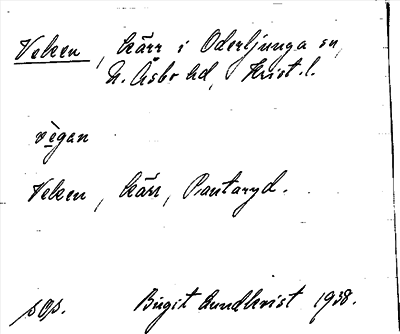 Veken, kärr i Oderljunga sn,
N. Åsbo hd, Krist. l.
vègan
Veken, kärr, Pantaryd.
sOp. Birgit Lundkvist 1938.